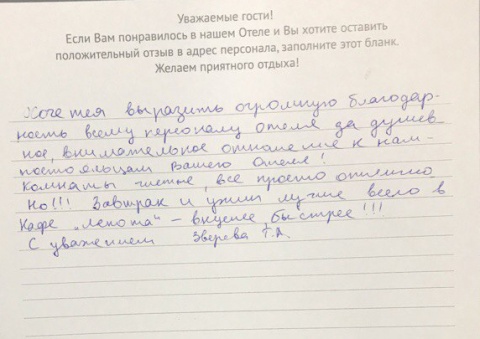 Уважаемые гости!
Если Вам понравилось в нашем Отеле и Вы хотите оставить
положительный отзыв в адрес персонала, заполните этот бланк.
Желаем приятного отдыха!
Хочется выразить огромную благодар-
ность всему персоналу отеля за душев
ное, внимательное отношение к нам-
постояльцам Вашего Отеля!
Комнаты чистые, все просто отлично
Но!!! Завтрак и ужин лучше всего в
Кафе „Лепота" - вкуснее, быстрее!!!
С уважением Зверева Г.А.